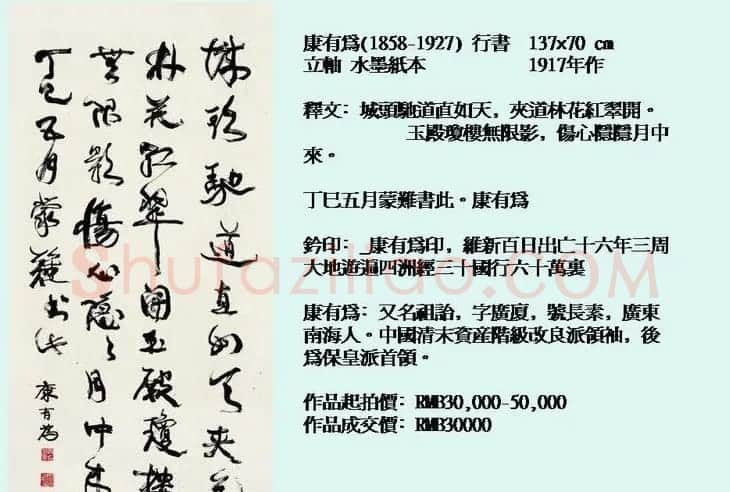 城頭馳道直如天夾
林花紅翠開玉殿瓊樓
無限影傷心隱々月中來
丁巳五月蒙難書此
康有為
康有爲(1858-1927) 行書 137x70 cm
立軸 水墨紙本 1917年作
釋文: 城頭馳道直如天，夾道林花紅翠開。
玉殿瓊樓無限影，傷心隱隱月中
來。
丁巳五月蒙難書此。康有爲
鈐印: 康有爲印，維新百日出亡十六年三周
大地遊遍四洲經三十國行六十萬裏
康有爲: 又名祖詒，字廣廈，號長素，廣東
南海人。中國清末資産階級改良派領袖，後
爲保皇派首領。
作品起拍價: RMB30,000-50,000
作品成交價: RMB30000
Shufaziliao.COM